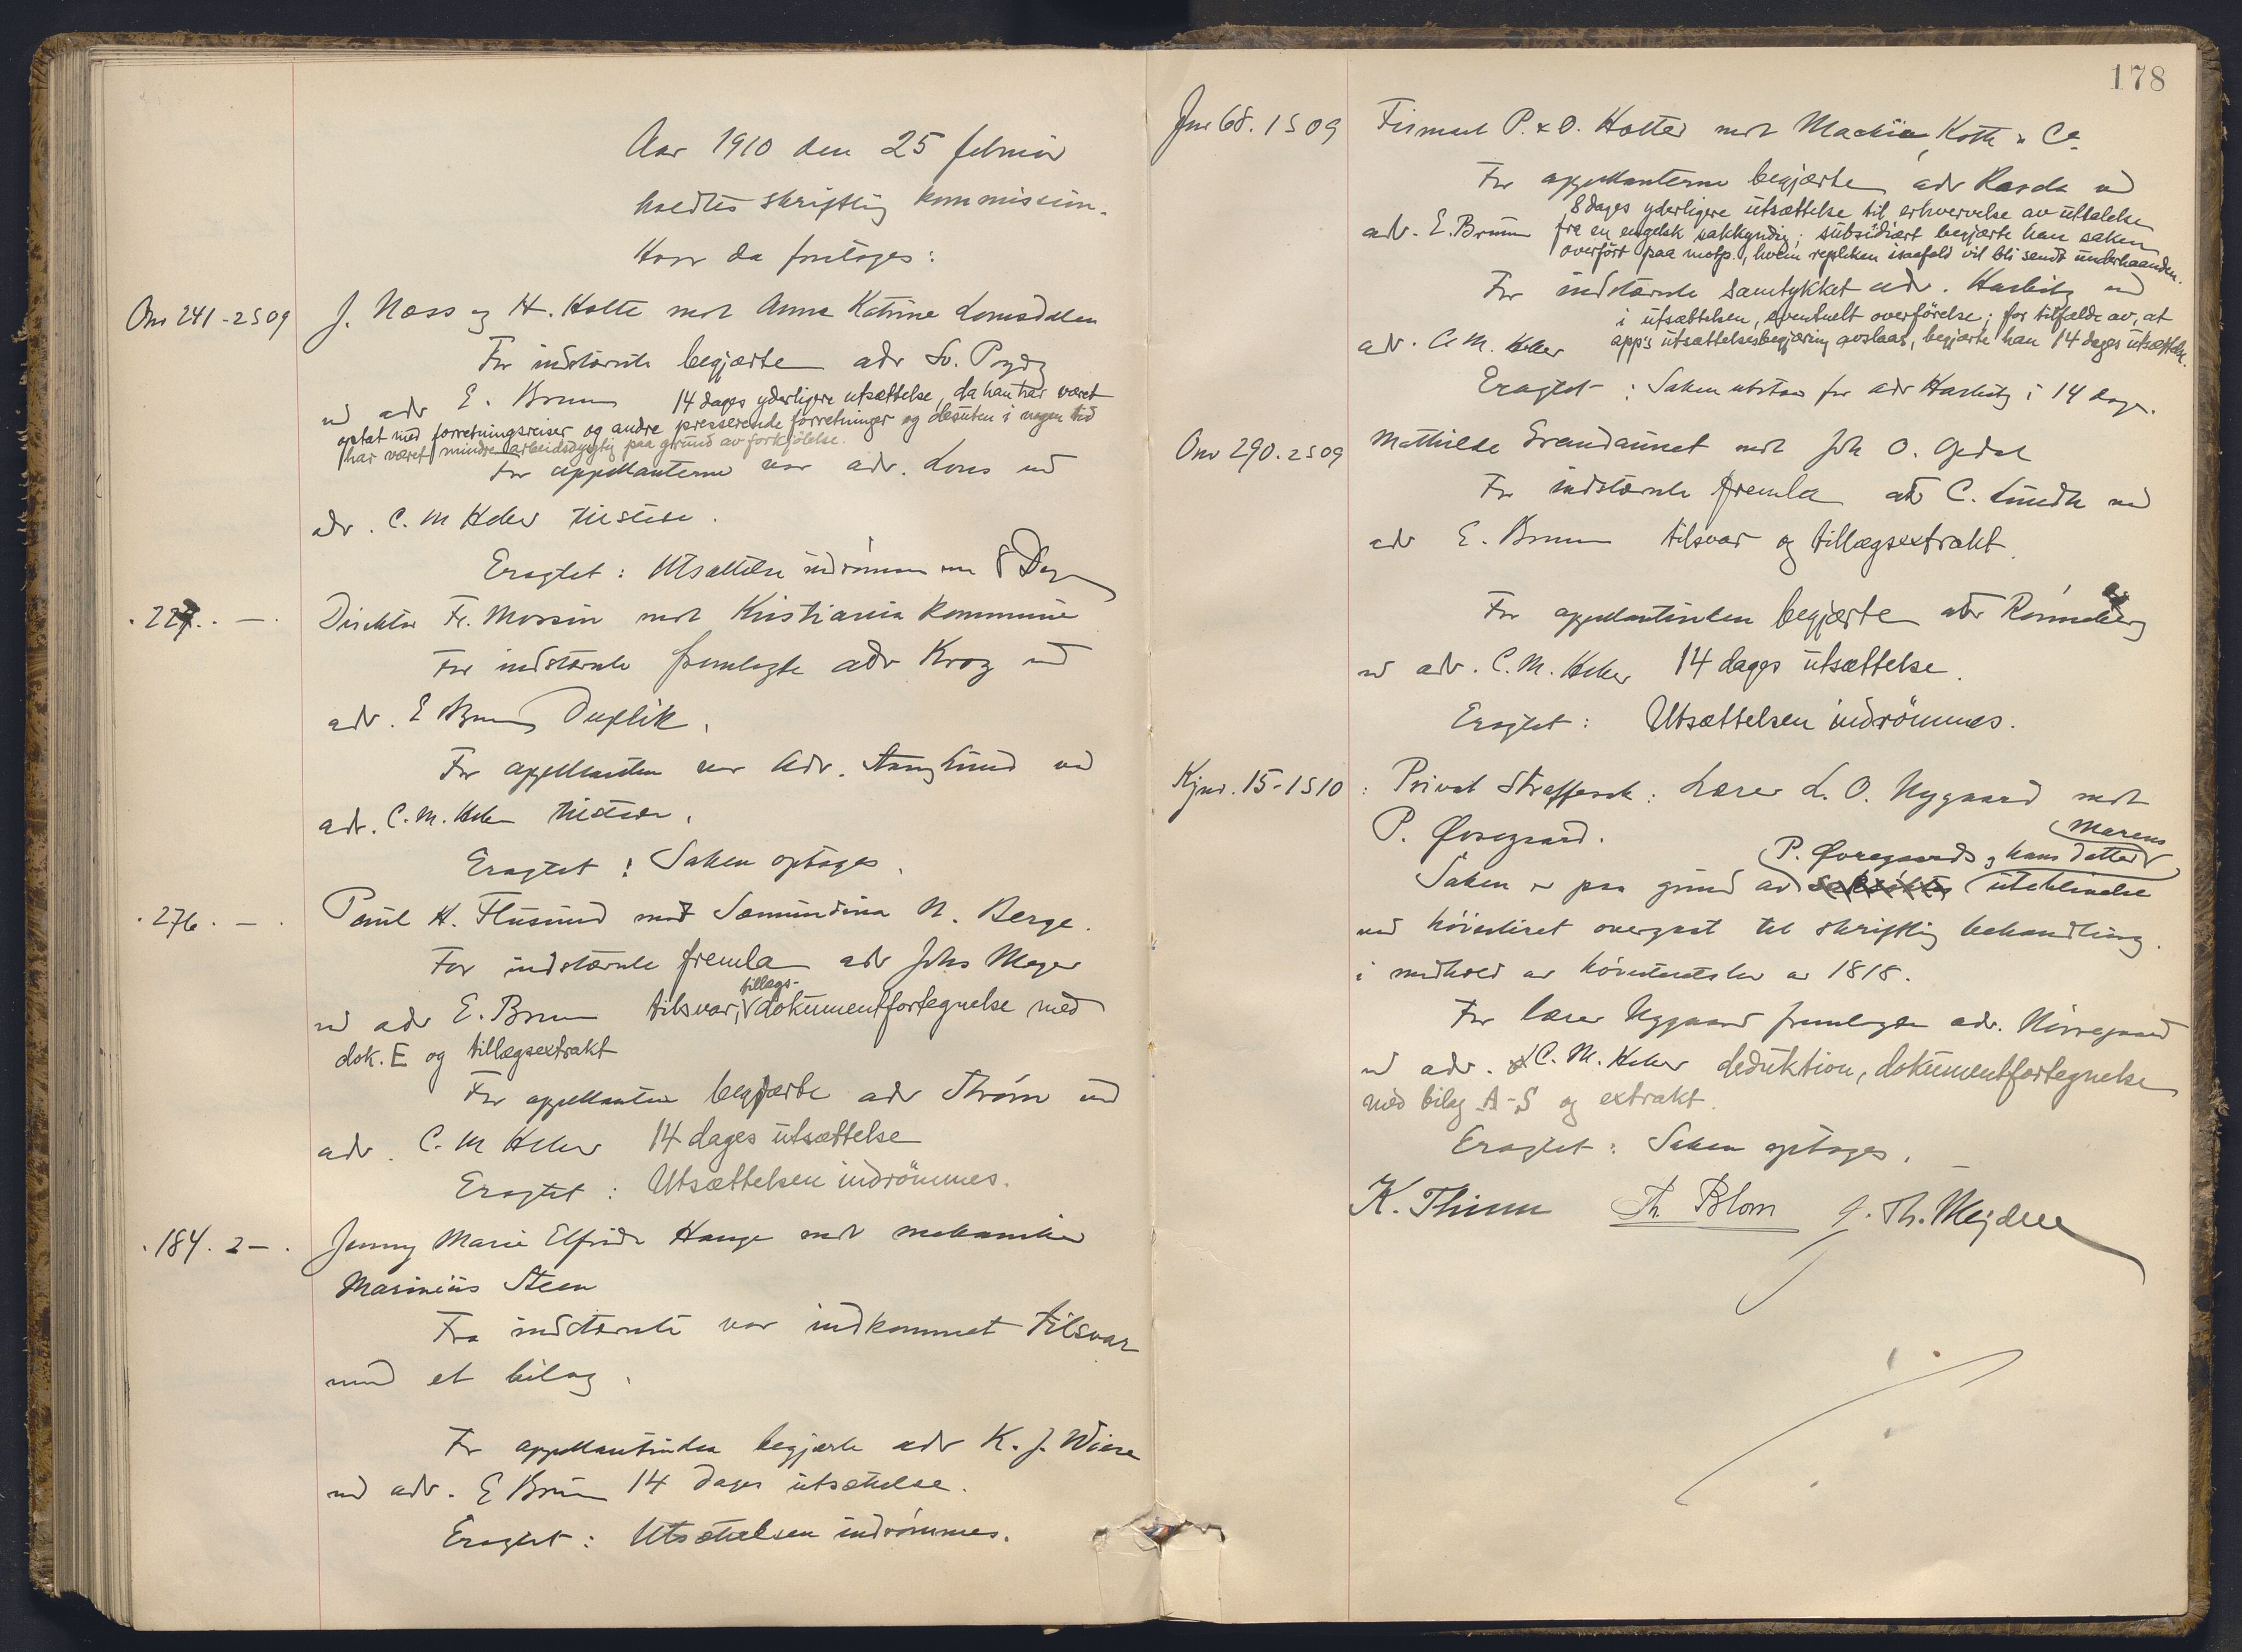 Aar 1910 den 25 februar
holdtes skriftlig kommission.
Hvor da foretoges:
Onr 241-2S09 J. Næss og H. Holte mot Anna Katrine Lomsdalen
For indstævnte begjærte adv Sv.
ved adv E. Bruun 14 dages yderligere utsættelse, da han har været
optat med forretningsreiser og andre presserende forretninger og desuten i nogen tid
har været mindre arbeidsdygtig paa grund av forkjölelse.
For appellanterne var adv. Lous ved
adv. C. M Heller tilstede.
Eragtet: Utsættelse indrömmes 8 Dage
. 227. . — . Direktör Fr. Morsin mot Kristiania kommune
For indstævnte fremlagte adv Krog ved
adv. E Bruun Duplik.
For appellanten var Adv. Stang Lund ved
adv. C. M. Heller tilstede.
Eragtet: Saken optages.
. 276. — . Paul H. Flusund mot Samundina N. Berge.
For indstævnte fremla adv Johs Meyer
ved adv E. Bruun tilsvar, tillægs-dokumentfortegnelse med
dok. E og tillægsextrakt
For appellanten begjærte adv Ström ved
adv. C. M Heller 14 dages utsættelse
Eragtet: Utsættelsen indrömmes.
. 184. 2 — . Jenny Marie Elfrida Hauge mot mekaniker
Marinius Steen
Fra indstævnte var indkommet tilsvar
med et bilag.
For appellantinden begjærte adv K. J. Wiese
ved adv. E Bruun 14 dages utsættelse.
Eragtet: Utsættelsen indrömmes.
178
Jnr 68. 1S09 Firmaet P. & O. Holter mot Mackie, Koth & Co.
For appellanterne begjærte adv ved
adv. E. Bruun 8 dages yderligere utsættelse til erhvervelse av uttalelse
fra en engelsk sakkyndig; subsidiært begjærte han saken
overført paa motp., hvem repliken isaafald vil bli sendt underhaanden.
For indstævnte samtykket adv. Harbitz ved
adv. C. M. Heller i utsættelsen, eventuelt overförelse; for tilfælde av, at
app's utsættelsesbegjæring avslaaes, begjærte han 14 dages utsættelse.
Eragtet: Saken utstaar for adv Harbitz i 14 dage.
Onr 290. 2S09 Mathilde Grandaunet mot Joh O. Opdal
For indstævnte fremla adv C. Lundh ved
adv E. Bruun tilsvar og tillægsextrakt.
For appellantinden begjærte adv Rönneberg
ved adv. C. M. Heller 14 dages utsættelse.
Eragtet: Utsættelsen indrömmes.
Kjnr. 15-1S10 : Privat Straffesak: Lærer L. O. Nygaard mot
P. Øvregaard.
Saken er paa grund av P. Øvregaards og hans datter Marens uteblivelse
ved höiesteret overgaat til skriftlig behandling
i medhold av höiesteretslov av 1818.
For lærer Nygaard fremlagde adv. Nörregaard
ved adv. C. M. Heller deduktion, dokumentfortegnelse
med bilag A-S og extrakt.
Eragtet: Saken optages.
K. Thinn Th. Blom J. Th. Mejdell